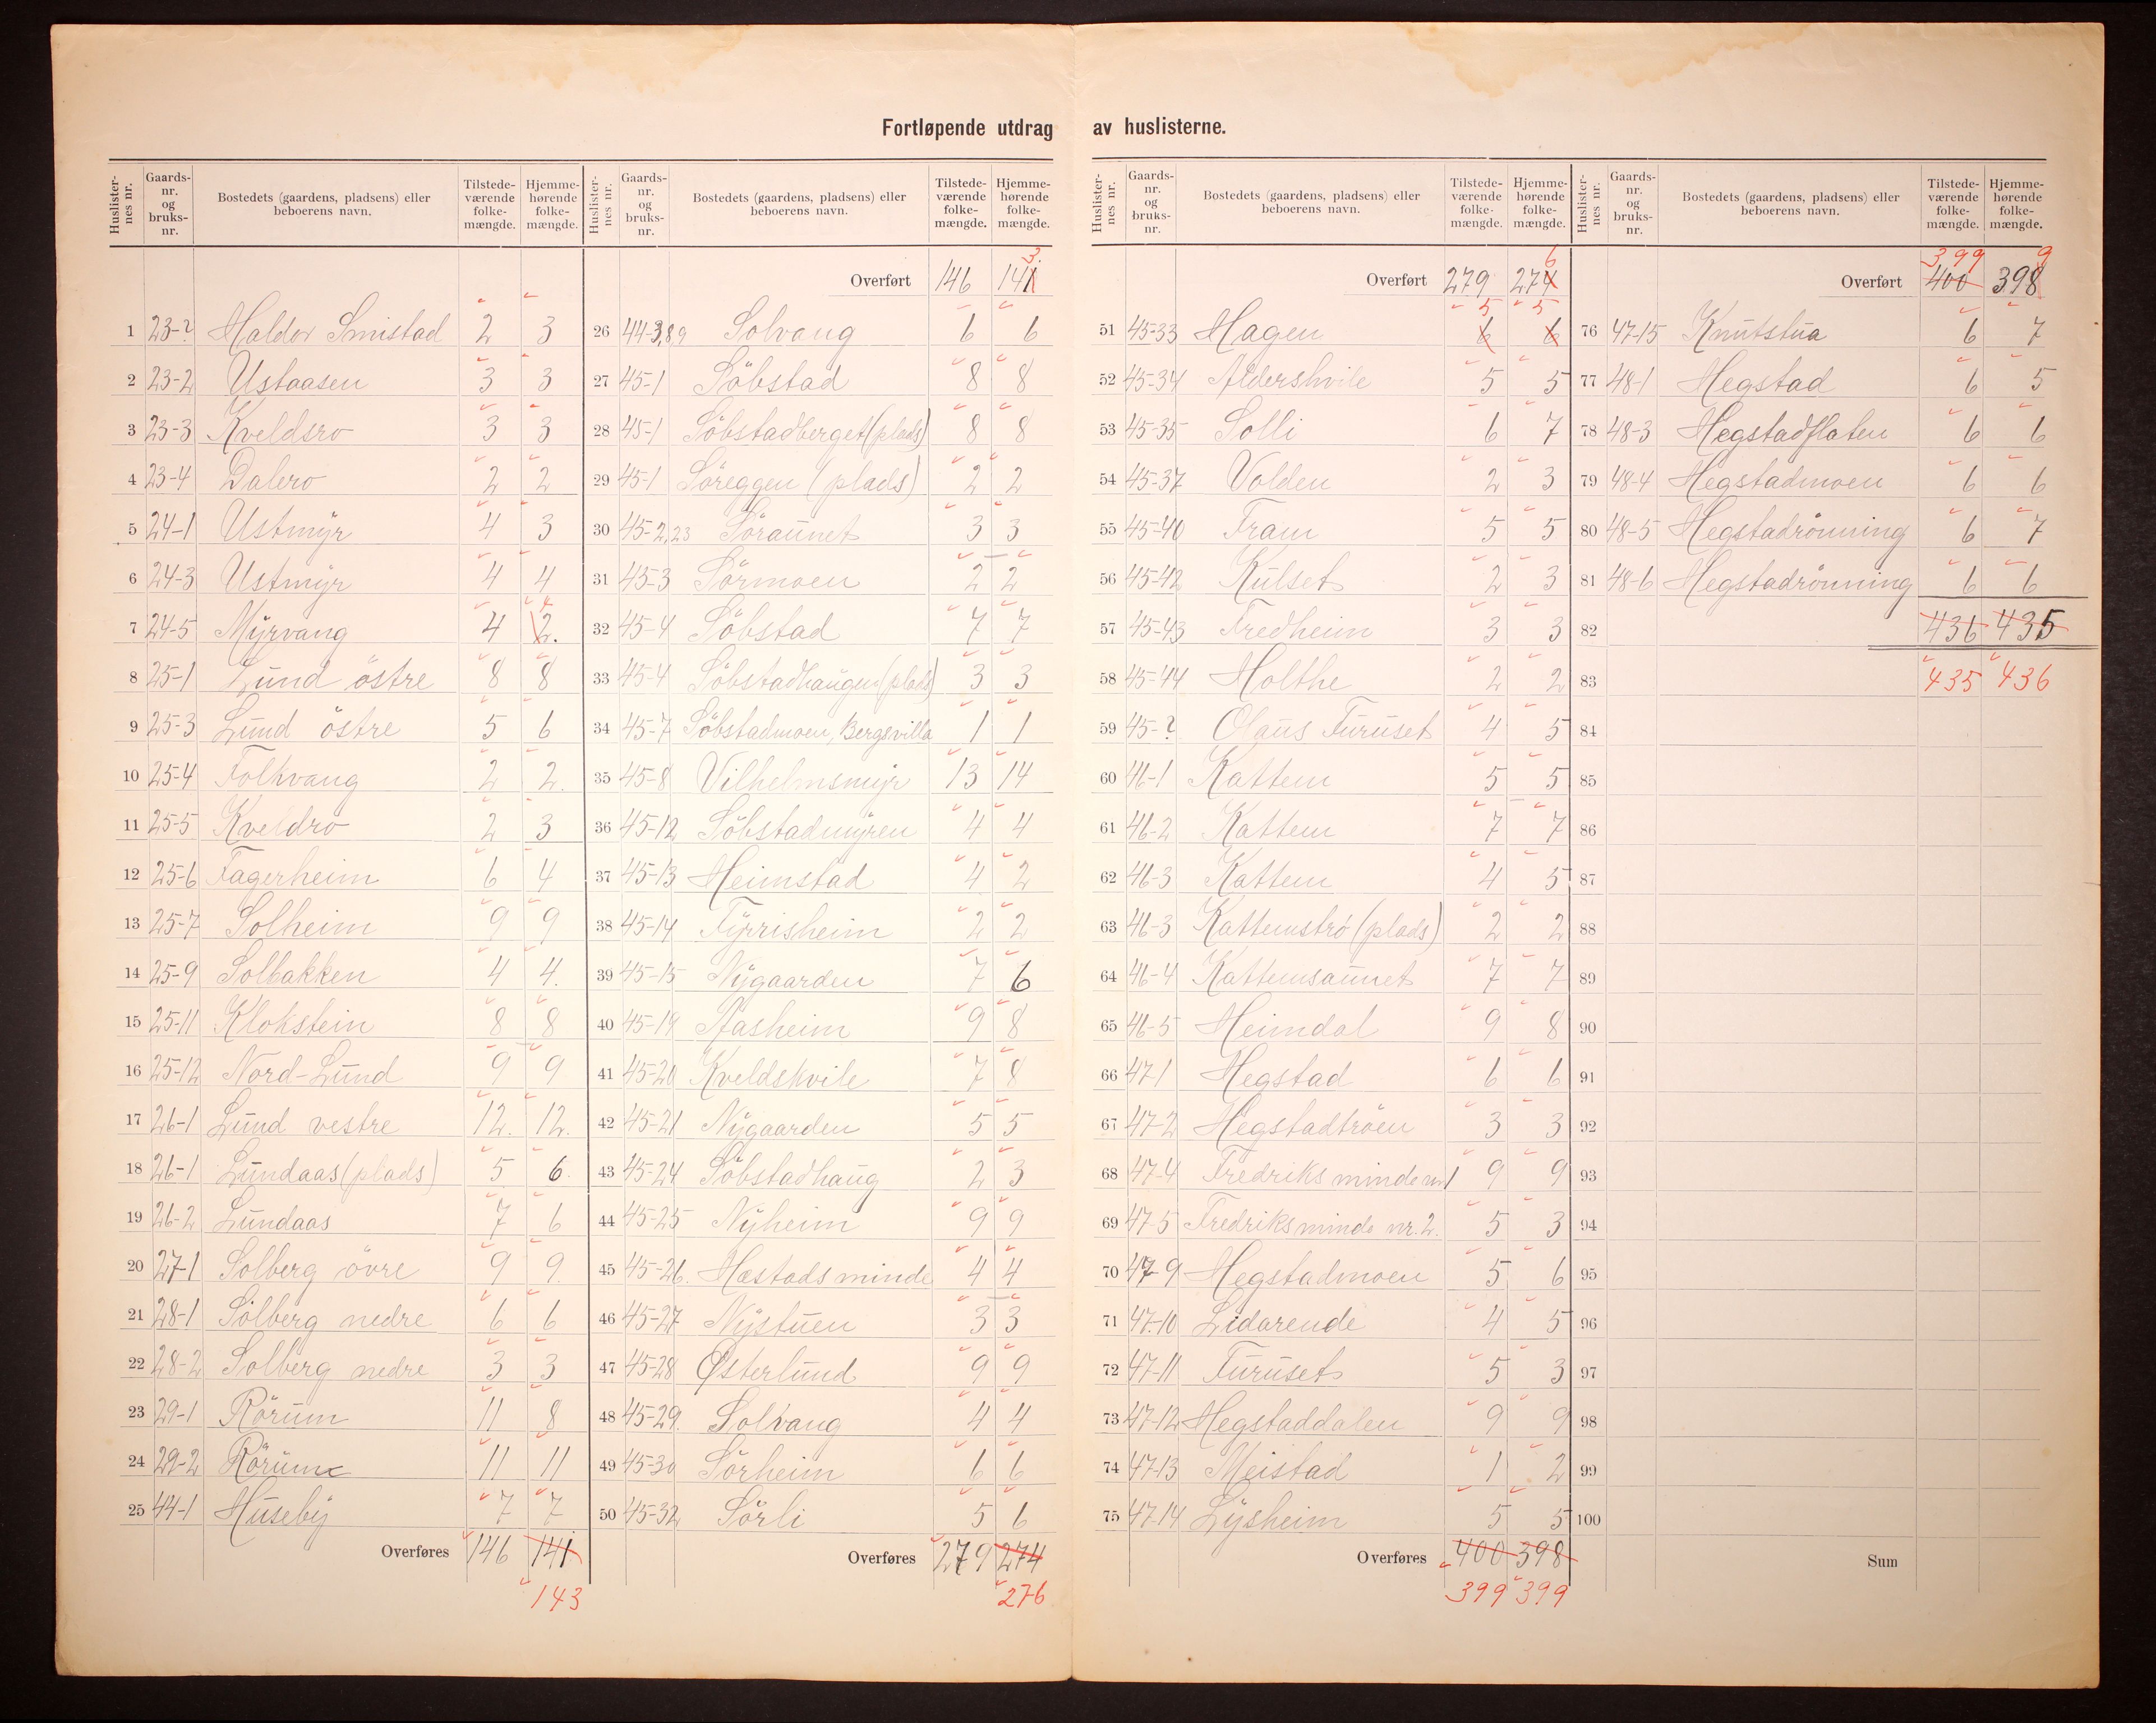 Fortløpende utdrag av huslisterne.
Huslister-nes nr. Gaards-nr. og bruks-nr. Bostedets (gaardens, pladsens) eller beboerens navn. Tilstede-værende folke-mængde. Hjemme-hørende folke-mængde.
1 23-? Haldor Smistad 2 3
2 23-2 Ustaasen 3 3
3 23-3 Kveldsro 3 3
4 23-4 Dalero 2 2
5 24-1 Ustmyr 4 3
6 24-3 Ustmyr 4 4
7 24-5 Myrvang 4 2. 4
8 25-1 Lund östre 8 8
9 25-3 Lund östre 5 6
10 25-4 Folkvang 2 2.
11 25-5 Kveldro 2 3
12 25-6 Fagerheim 6 4
13 25-7 Solheim 9 9
14 25-9 Solbakken 4 4.
15 25-11 Klokstein 8 8
16 25-12 Nord-Lund 9 9
17 26-1 Lund vestre 12. 12.
18 26-1 Lundaas (plads) 5 6.
19 26-2 Lundaas 7 6
20 27-1 Solberg övre 9 9.
21 28-1 Solberg nedre 6 6
22 28-2 Solberg nedre 3 3
23 29-1 Rörum 11 8
24 29-2 Rörum 11 11
25 44-1 Huseby 7 7
Overføres 146 141
143
Huslister-nes nr. Gaards-nr. og bruks-nr. Bostedets (gaardens, pladsens) eller beboerens navn. Tilstede-værende folke-mængde. Hjemme-hørende folke-mængde.
Overført 146 141 3.
26 44-3,8,9 Solvang 6 6
27 45-1 Söbstad 8 8
28 45-1 Söbstadberget (plads) 8 8
29 45-1 Söreggen (plads) 2 2
30 45-2,23 Söraunet 3 3
31 45-3 Sörmoen 2 2
32 45-4 Söbstad 7 7
33 45-4 Söbstadhaugen (plads) 3 3
34 45-7 Söbstadmoen, Bergsvilla 1 1
35 45-8 Vilhelmsmyr 13 14
36 45-12 Söbstadmyren 4 4
37 45-13 Heimstad 4 2
38 45-14 Tyrrisheim 2 2
39 45-15 Nygaarden 7 6
40 45-19 Aasheim 9 8
41 45-20 Kveldskvile 7 8
42 45-21 Nygaarden 5 5
43 45-24 Söbstadhaug 2 3
44 45-25 Nyheim 9 9
45 45-26. Hæstadsminde 4 4
46 45-27 Nystuen 3 3
47 45-28 Østerlund 9 9
48 45-29. Solvang 4 4
49 45-30 Sörheim 6 6
50 45-32 Sörli 5 6
Overføres 279 274
276
Huslister-nes nr. Gaards-nr. og bruks-nr. Bostedets (gaardens, pladsens) eller beboerens navn. Tilstede-værende folke-mængde. Hjemme-hørende folke-mængde.
Overført 279 274 6
51 45-33 Hagen 6 5 6 5
52 45-34 Aldershvile 5 5
53 45-35 Solli 6 7
54 45-37 Volden 2 3
55 45-40 Fram 5 5
56 45-42 Kulset 2 3
57 45-43 Fredheim 3 3
58 45-44 Holthe 2 2
59 45-? Olaus Furuset 4 5
60 46-1 Kattem 5 5
61 46-2 Kattem 7 7
62 46-3 Kattem 4 5
63 46-3 Kattemstrø (plads) 2 2
64 46-4 Kattemsaunet 7 7
65 46-5 Heimdal 9 8
66 47-1 Hegstad 6 6
67 47-2 Hegstadtröen 3 3
68 47-4 Fredriksminde nr 1 9 9
69 47-5 Fredriksminde nr. 2. 5 3
70 47-9 Hegstadmoen 5 6
71 47-10 Lidarende 4 5
72 47-11 Furuset 5 3
73 47-12 Hegstaddalen 9 9
74 47-13 Meistad 1 2
75 47-14 Lysheim 5 5
Overføres 400 398
399 399
Huslister-nes nr. Gaards-nr. og bruks-nr. Bostedets (gaardens, pladsens) eller beboerens navn. Tilstede-værende folke-mængde. Hjemme-hørende folke-mængde.
399 9
Overført 400 398
76 47-15 Knutstua 6 7
77 48-1 Hegstad 6 5
78 48-3 Hegstadflaten 6 6
79 48-4 Hegstadmoen 6 6
80 48-5 Hegstadrönning 6 7
81 48-6 Hegstadrönning 6 6
82 436 435
83 435 436
84
85
86
87
88
89
90
91
92
93
94
95
96
97
98
99
100
Sum